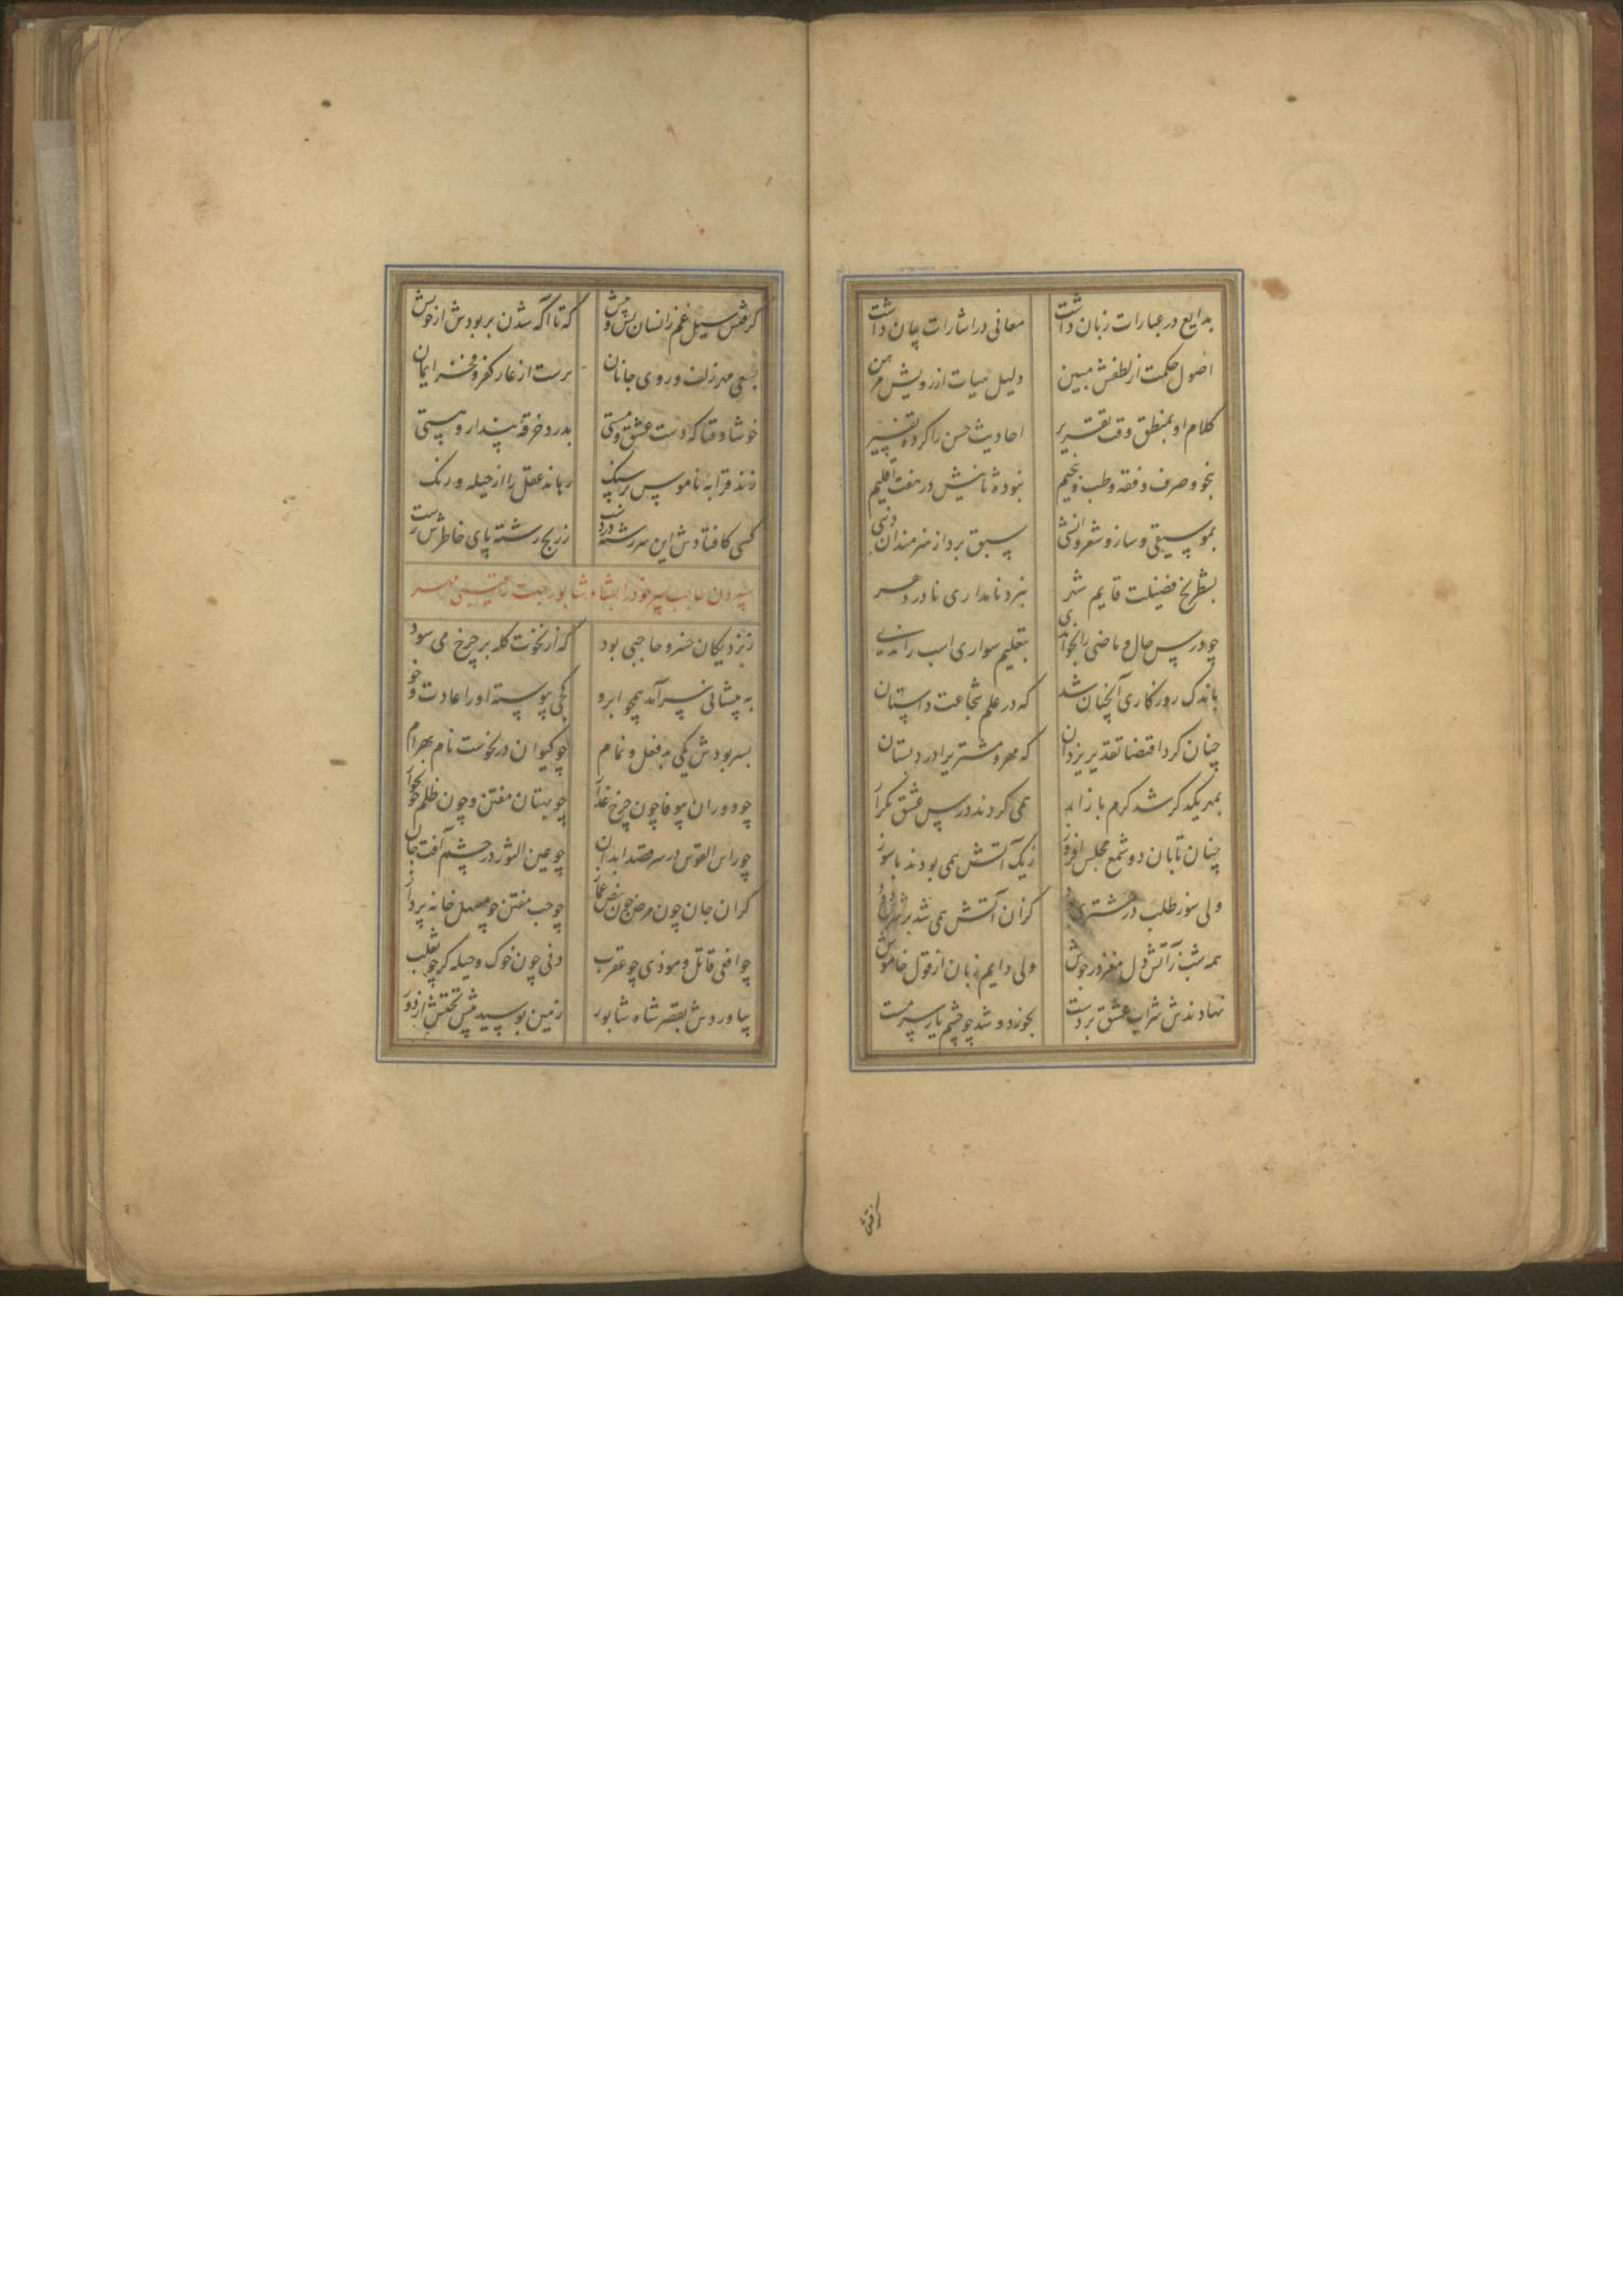 بدایع در عبارات زبان داشت معانی در اشارات چان داشت
اصول حکمت از لطفش مبین دلیل هیات از رویش مبرهن
کلام او بمنطق وقت تقریر احادیث حسن را کرده تفسیر
بنحو و صرف و فقه و طب و تنجیم نبوده ثانیش در هفت اقلیم
بموسیقی و ساز و شعر و انشی سبق برد از هنرمندان دنیی
بشطرنج فضیلت قایم شهر بنرد نامداری نادر دهر
چو درس حال و ماضی را بخواندی بتعلیم سواری اسب راندی
باندک روزکاری آنچنان شد که در علم شجاعت داستان
چنان کرد اقتضا تقدیر یزدان که مهر و مشتریرا در دبستان
بمهر یکدکر شد کرم بازار همی کردند درس عشق تکرار
چنان تابان دو شمع مجلس افروز زیک آتش همی بودند باسوز
ولی سوز طلب در مشتری کزان آتش همی شد بر سرش دود
همه شب زآتش دل مغز در جوش ولی دایم زبان از قول خاموش
نهادندش شراب عشق بر دست بخورد و شد چو چشم یار سرمست
کرفتش
کرفتش سیل غم زانسان پس و پیش که تا آکه شدن بربودش از خویش
بسعی مهر زلف و روی جانان برست از عار کفر و فخر ایمان
خوشا وقتا که دست عشق و مستی بدرد خرقهٔ پندار و هستی
زند قرابه ناموس بر سنک رهاند عقل را از حیله و رنک
کسی کافتادش این سررشته در دست ز رنج رشته پای خاطرش رست
سپردن حاجب پسر خود را بشاه شابور جهت همنشینی مهر
ز نزدیکان خسرو حاجبی بود که از نخوت کله بر چرخ می سود
به پیشانی سرآمد همچو ابرو کجی پیوسته او را عادت و خو
پسر بودش یکی بدفعل و نمام چو کیوان در نحوست نام بهرام
چو دوران بیوفا چون چرخ غدار چو بهتان مفتن و چون ظلم خونخوار
چو راس القوس در سر قصد ابدان چو عین الثور در چشم آفت جان
کران جان چون مرض چون نبض غماز چو حب مفتن چو مسهل خانه پرداز
چو افعی قاتل و موذی چو عقرب دنی چون خوک و حیله کر چو ثعلب
بیاوردش بقصر شاه شابور زمین بوسید پیش تختش از دور